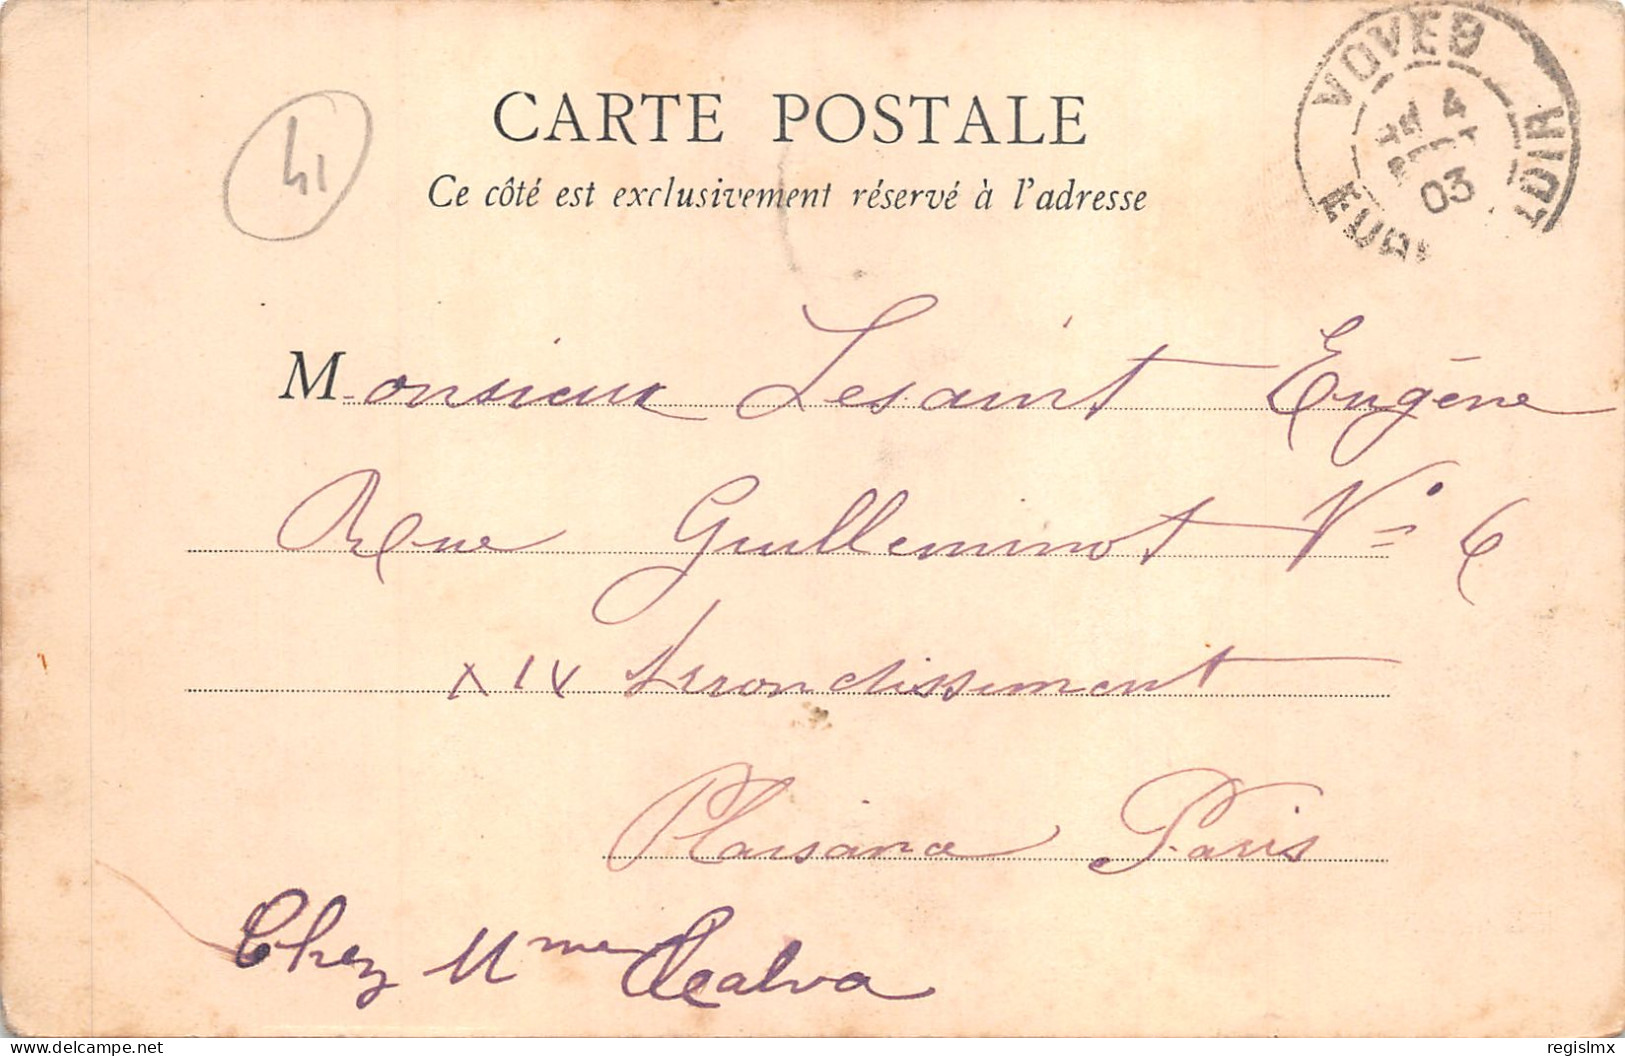 41
CARTE POSTALE
Ce côté est exclusivement réservé à l'adresse
VOVES
4
03
EURE
Monsieur Lesaint Eugène
Rue Guilleminot N° 6
XIV Arrondissement
Plaisance Paris
Chez Mme Calva
delcampe.net
regislmx